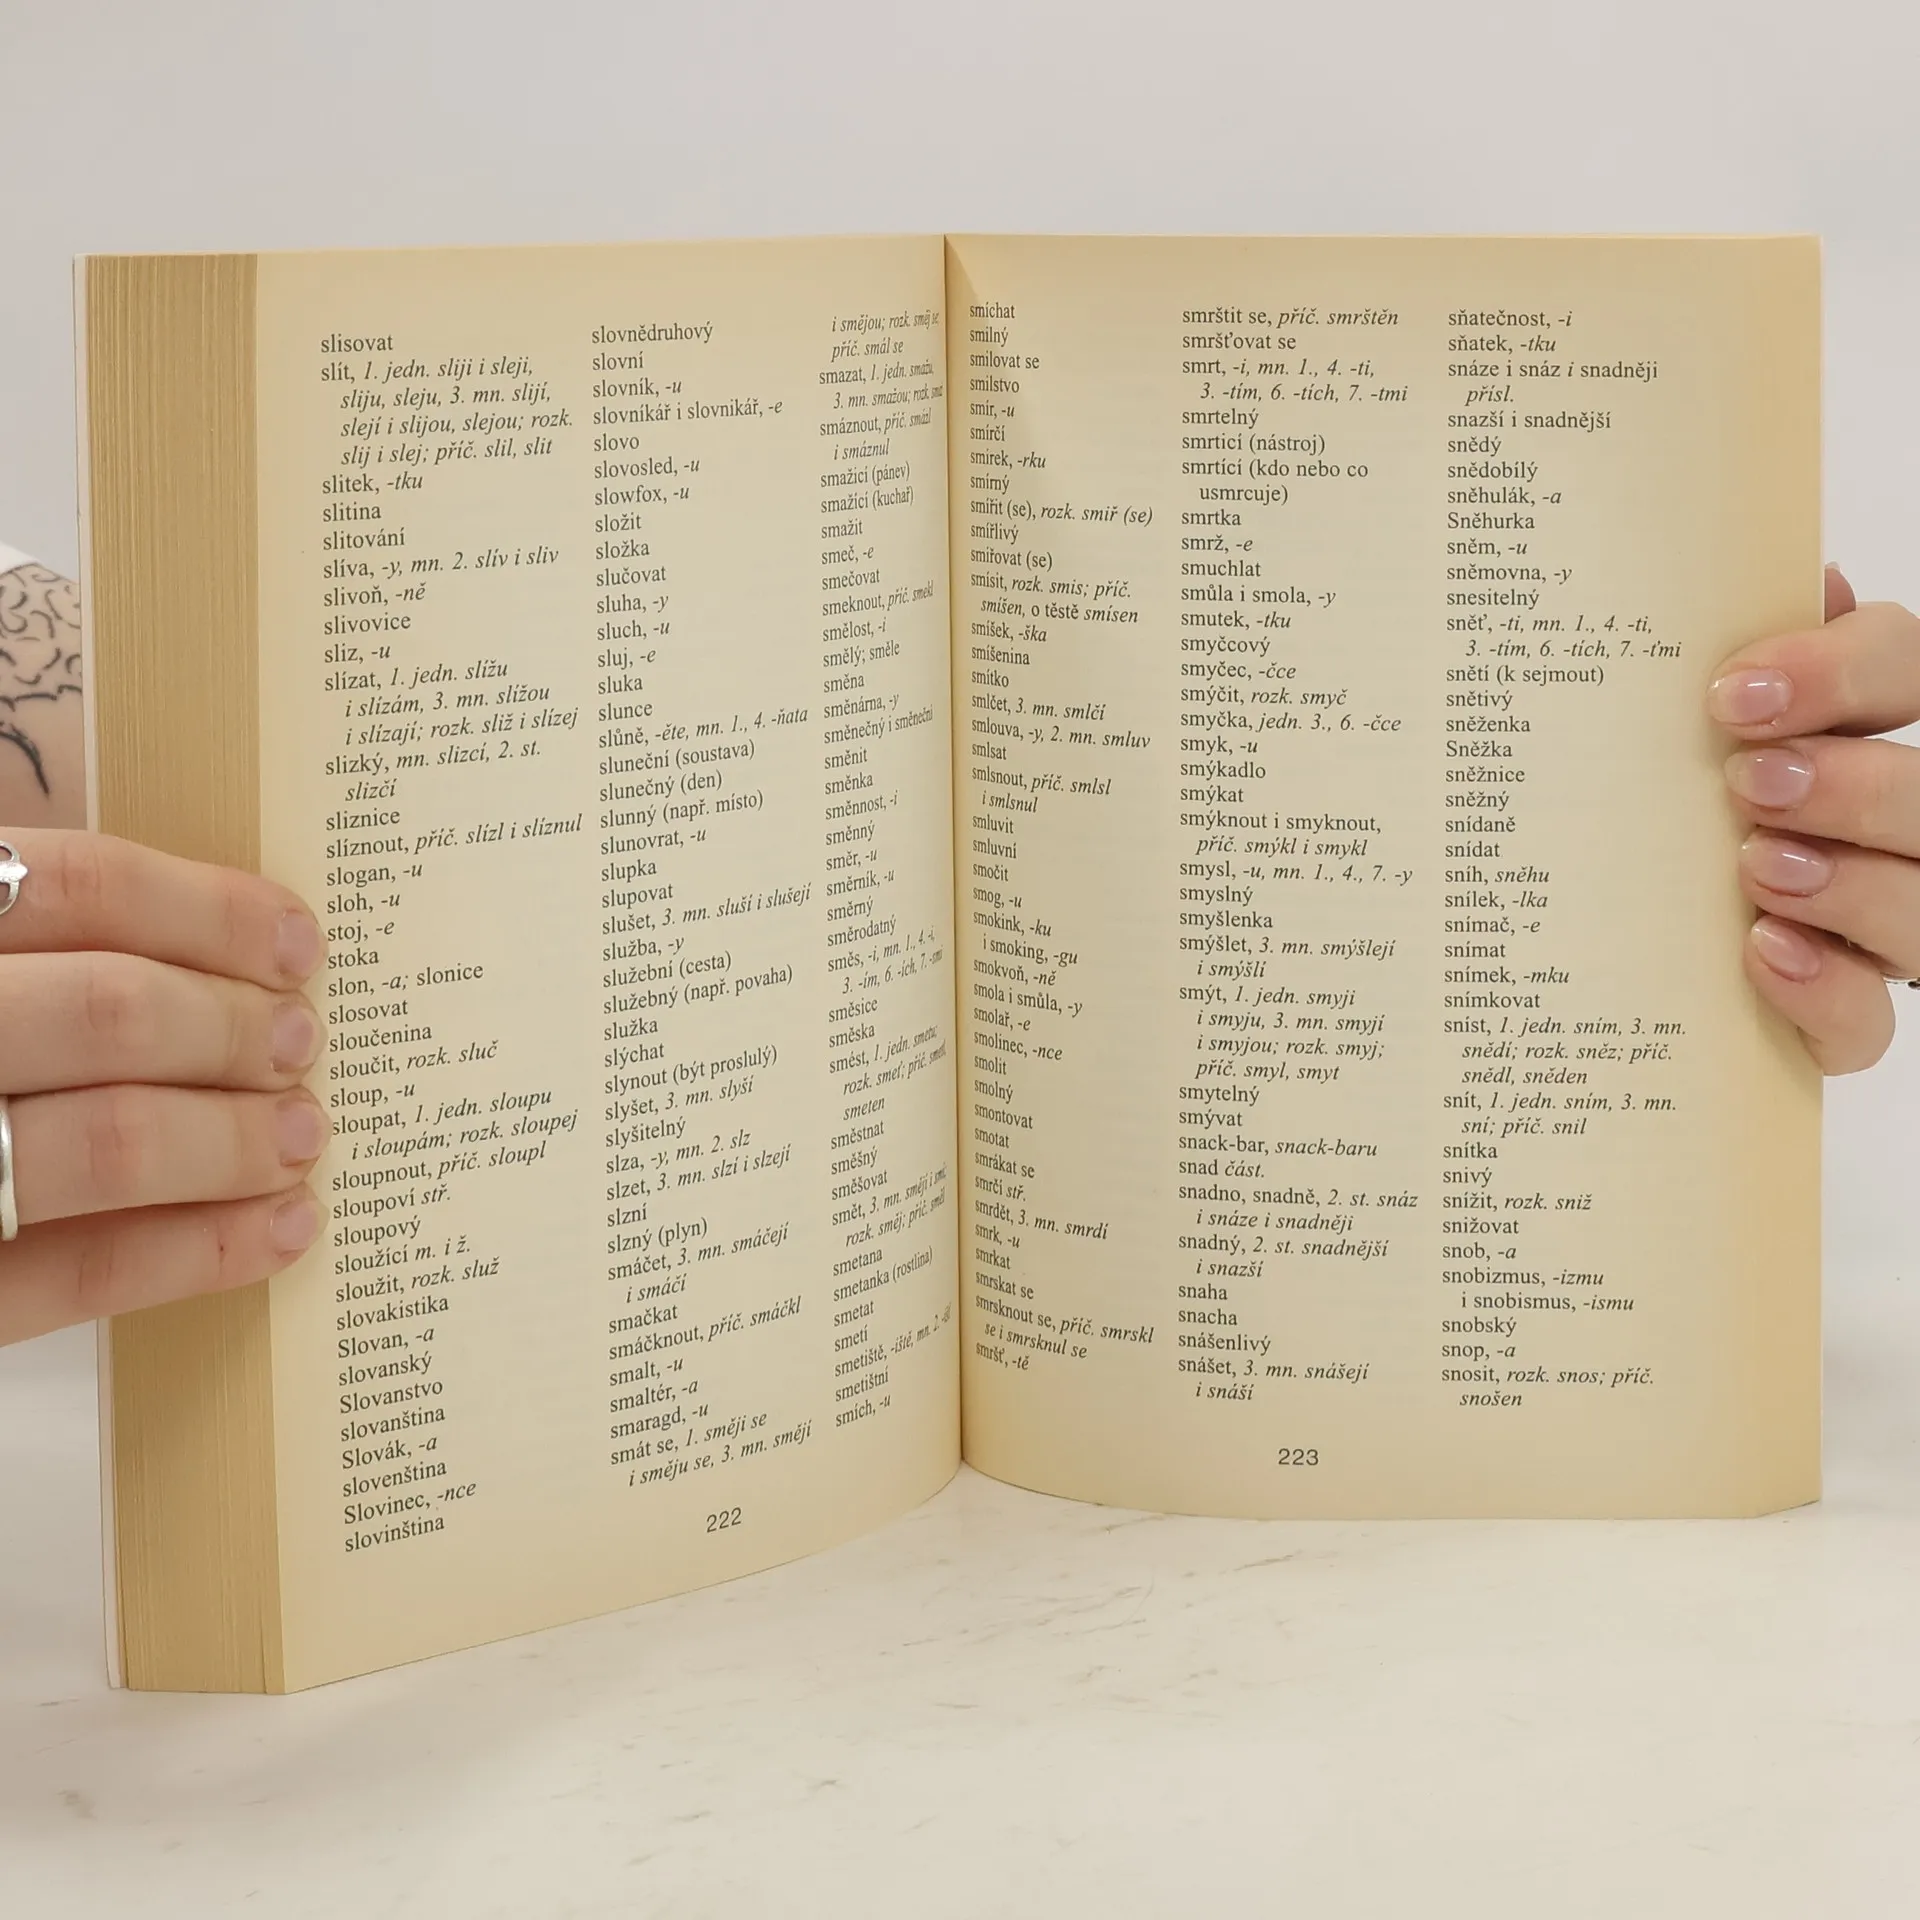 slisovat
slít, 1. jedn. sliji i sleji,
sliju, sleju, 3. mn. slijí,
slejí i slijou, slejou; rozk.
slij i slej; příč. slil, slit
slitek, -tku
slitina
slitování
slíva, -y, mn. 2. slív i sliv
slivoň, -ně
slivovice
sliz, -u
slízat, 1. jedn. slížu
i slízám, 3. mn. slížou
i slízají; rozk. sliž i slízej
slizký, mn. slizcí, 2. st.
slizčí
sliznice
slíznout, příč. slízl i slíznul
slogan, -u
sloh, -u
stoj, -e
stoka
slon, -a; slonice
slosovat
sloučenina
sloučit, rozk. sluč
sloup, -u
sloupat, 1. jedn. sloupu
i sloupám; rozk. sloupej
sloupnout, příč. sloupl
sloupoví stř.
sloupový
sloužící m. i ž.
sloužit, rozk. služ
slovakistika
Slovan, -a
slovanský
Slovanstvo
slovanština
Slovák, -a
slovenština
Slovinec, -nce
slovinština
slovnědruhový
slovní
slovník, -u
slovníkář i slovnikář, -e
slovo
slovosled, -u
slowfox, -u
složit
složka
slučovat
sluha, -y
sluch, -u
sluj, -e
sluka
slunce
slůně, -ěte, mn. 1., 4. -ňata
sluneční (soustava)
slunečný (den)
slunný (např. místo)
slunovrat, -u
slupka
slupovat
slušet, 3. mn. sluší i slušejí
služba, -y
služební (cesta)
služebný (např. povaha)
služka
slýchat
slynout (být proslulý)
slyšet, 3. mn. slyší
slyšitelný
slza, -y, mn. 2. slz
slzet, 3. mn. slzí i slzejí
slzní
slzný (plyn)
smáčet, 3. mn. smáčejí
i smáčí
smačkat
smáčknout, příč. smáčkl
smalt, -u
smaltér, -a
smaragd, -u
smát se, 1. směji se
i směju se, 3. mn. smějí
i smějou; rozk. směj se
příč. smál se
smazat, 1. jedn. smažu,
3. mn. smažou; rozk.
smáznout, příč. smázl
i smáznul
smažicí (pánev)
smažící (kuchař)
smažit
smeč, -e
smečovat
smeknout, příč. smekl
smělost, -i
smělý; směle
směna
směnárna, -y
směnečný i směneční
směnit
směnka
směnnost, -i
směnný
směr, -u
směrník, -u
směrný
směrodatný
směs, -i, mn. 1., 4. -i,
3. -ím, 6. -ích, 7. -smi
směsice
směska
smést, 1. jedn. smetu;
rozk. smeť; příč. smetl,
smeten
směstnat
směšný
směšovat
smět, 3. mn. smějí i smí;
rozk. směj; příč. směl
smetana
smetanka (rostlina)
smetat
smetí
smetiště, -iště, mn. 2.
smetištní
smích, -u
222
smíchat
smilný
smilovat se
smilstvo
smír, -u
smírčí
smirek, -rku
smírný
smířit (se), rozk. smiř (se)
smířlivý
smiřovat (se)
smísit, rozk. smis; příč.
smíšen, o těstě smísen
smíšek, -ška
smíšenina
smítko
smlčet, 3. mn. smlčí
smlouva, -y, 2. mn. smluv
smlsat
smlsnout, příč. smlsl
i smlsnul
smluvit
smluvní
smočit
smog, -u
smokink, -ku
i smoking, -gu
smokvoň, -ně
smola i smůla, -y
smolař, -e
smolinec, -nce
smolit
smolný
smontovat
smotat
smrákat se
smrčí stř.
smrdět, 3. mn. smrdí
smrk, -u
smrkat
smrskat se
smrsknout se, příč. smrskl
se i smrsknul se
smršť, -tě
smrštit se, příč. smrštěn
smršťovat se
smrt, -i, mn. 1., 4. -ti,
3. -tím, 6. -tích, 7. -tmi
smrtelný
smrticí (nástroj)
smrtící (kdo nebo co
usmrcuje)
smrtka
smrž, -e
smuchlat
smůla i smola, -y
smutek, -tku
smyčcový
smyčec, -čce
smýčit, rozk. smyč
smyčka, jedn. 3., 6. -čce
smyk, -u
smýkadlo
smýkat
smýknout i smyknout,
příč. smýkl i smykl
smysl, -u, mn. 1., 4., 7. -y
smyslný
smyšlenka
smýšlet, 3. mn. smýšlejí
i smýšlí
smýt, 1. jedn. smyji
i smyju, 3. mn. smyjí
i smyjou; rozk. smyj;
příč. smyl, smyt
smytelný
smývat
snack-bar, snack-baru
snad část.
snadno, snadně, 2. st. snáz
i snáze i snadněji
snadný, 2. st. snadnější
i snazší
snaha
snacha
snášenlivý
snášet, 3. mn. snášejí
i snáší
sňatečnost, -i
sňatek, -tku
snáze i snáz i snadněji
přísl.
snazší i snadnější
snědý
snědobílý
sněhulák, -a
Sněhurka
sněm, -u
sněmovna, -y
snesitelný
sněť, -ti, mn. 1., 4. -ti,
3. -tím, 6. -tích, 7. -ťmi
snětí (k sejmout)
snětivý
sněženka
Sněžka
sněžnice
sněžný
snídaně
snídat
sníh, sněhu
snílek, -lka
snímač, -e
snímat
snímek, -mku
snímkovat
sníst, 1. jedn. sním, 3. mn.
snědí; rozk. sněz; příč.
snědl, sněden
snít, 1. jedn. sním, 3. mn.
sní; příč. snil
snítka
snivý
snížit, rozk. sniž
snižovat
snob, -a
snobizmus, -izmu
i snobismus, -ismu
snobský
snop, -a
snosit, rozk. snos; příč.
snošen
223